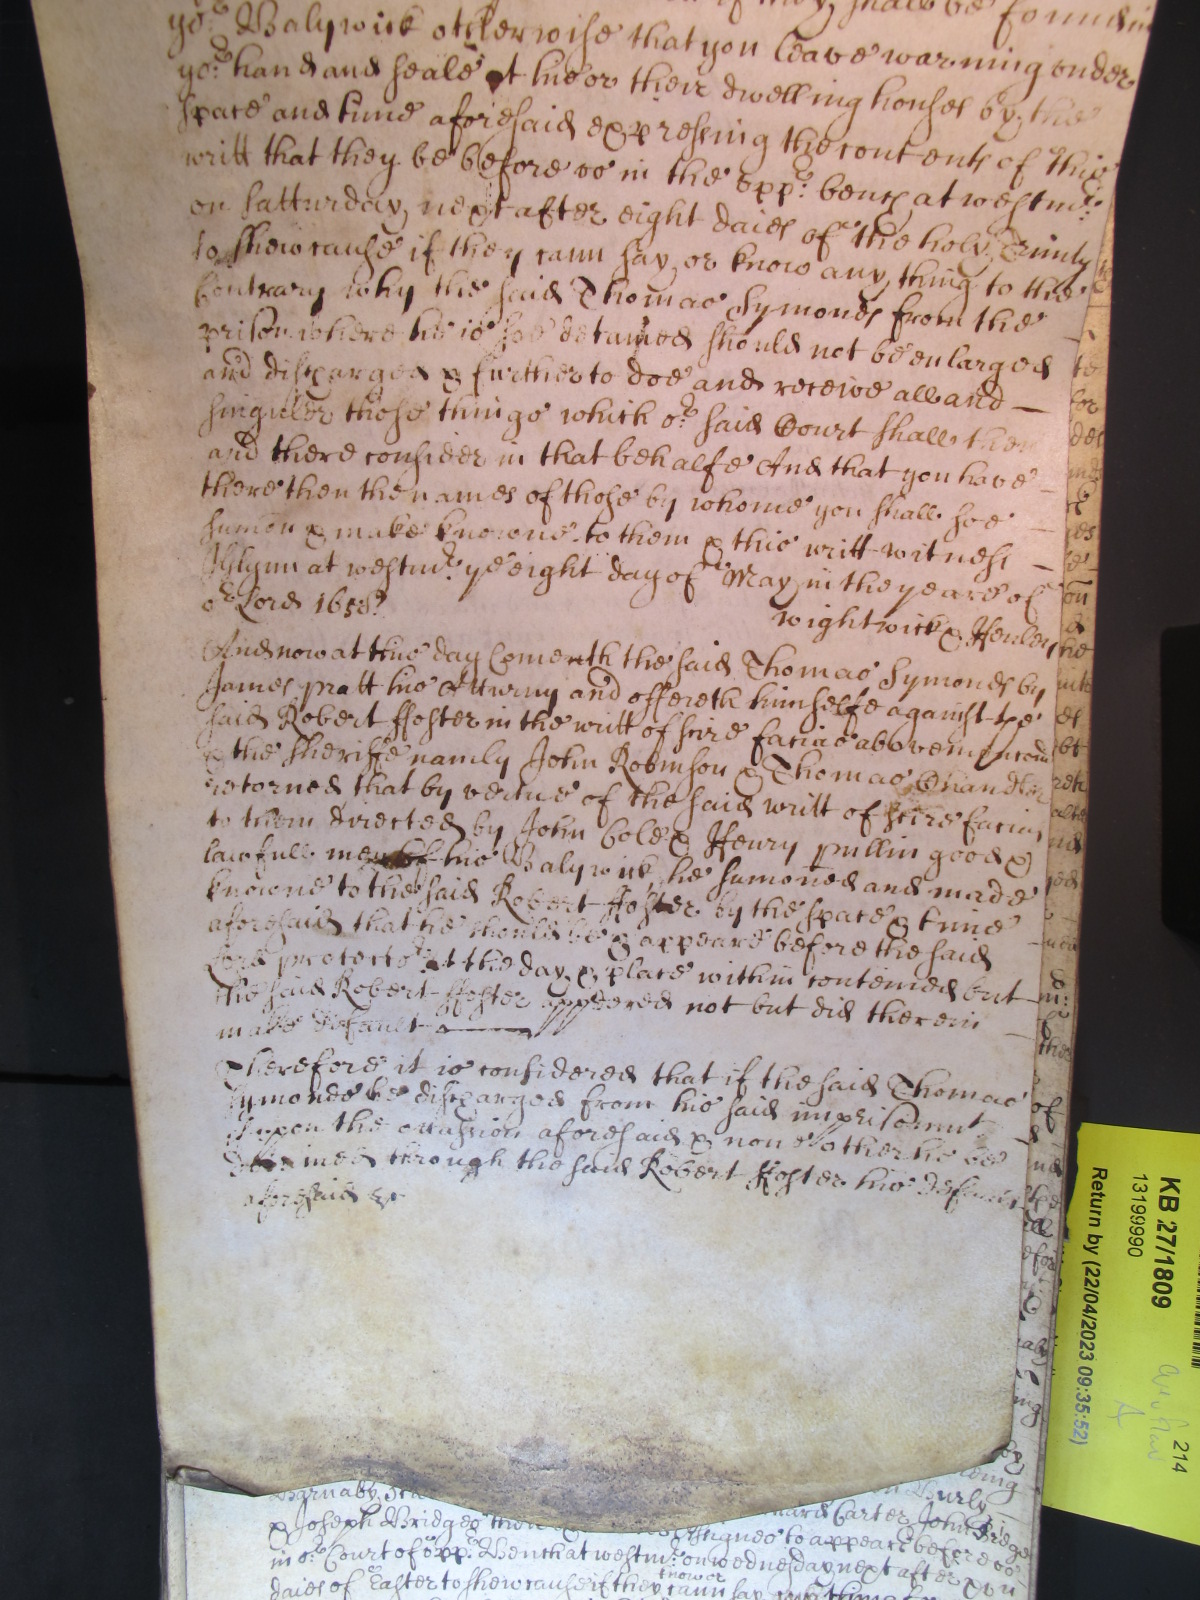 if they shall be found in
yor Balywick otherwise that you leave warning under
yor hand and seale at his or their dwelling houses by the
space and time aforesaid expressing the contents of this
writt that they be before us in the upp: bench at westmr:
on Satturday next after eight daies of the holy Trinity
to shew cause if they cann say or know any thing to the
Contrary why the said Thomas Symonds from the
prison where he is soe detained should not be enlarged
and discharged & further to doe and receive all and
singuler those things which or said Court shall then
and there consider in that behalfe And that you have
there then the names of those by whome you shall soe
sumon & make knowne to them & this writt witness
Glynn at westmr: ye eight day of May in the yeare of
or Lord 1658:
Wightwick & Henley
And now at this day Cometh the said Thomas Symonds by
James pratt his Atturny and offereth himselfe against the
said Robert ffoster in the writt of scire facias above
& the sheriffe namly John Robinson & Thomas Chandler
retorned that by vertue of the said writt of scire facias
to them directed by John Cole & Henry pullin good &
lawfull men of his Balywick he sumoned and made
knowne to the said Robert ffoster by the space & time
aforesaid that he should be & appeare before the said
Lord protector at the day & place within contened but
the said Robert ffoster appeered not but did therein
make default
Therefore it is considered that if the said Thomas
Symonds be discharged from his said imprisomt
upon the occassion aforesaid & none other he be
detained through the said Robert ffoster his default
aforesaid &c
Barnaby
Burly
& Joseph Bridges Carter John
to appeare before us
in or Court of upp: Bench at westmr: on wednesday next after
daies of Easter to shew cause if they know or cann say
KB 27/1809
13199990
Return by (22/04/2023 09:35:52)
214